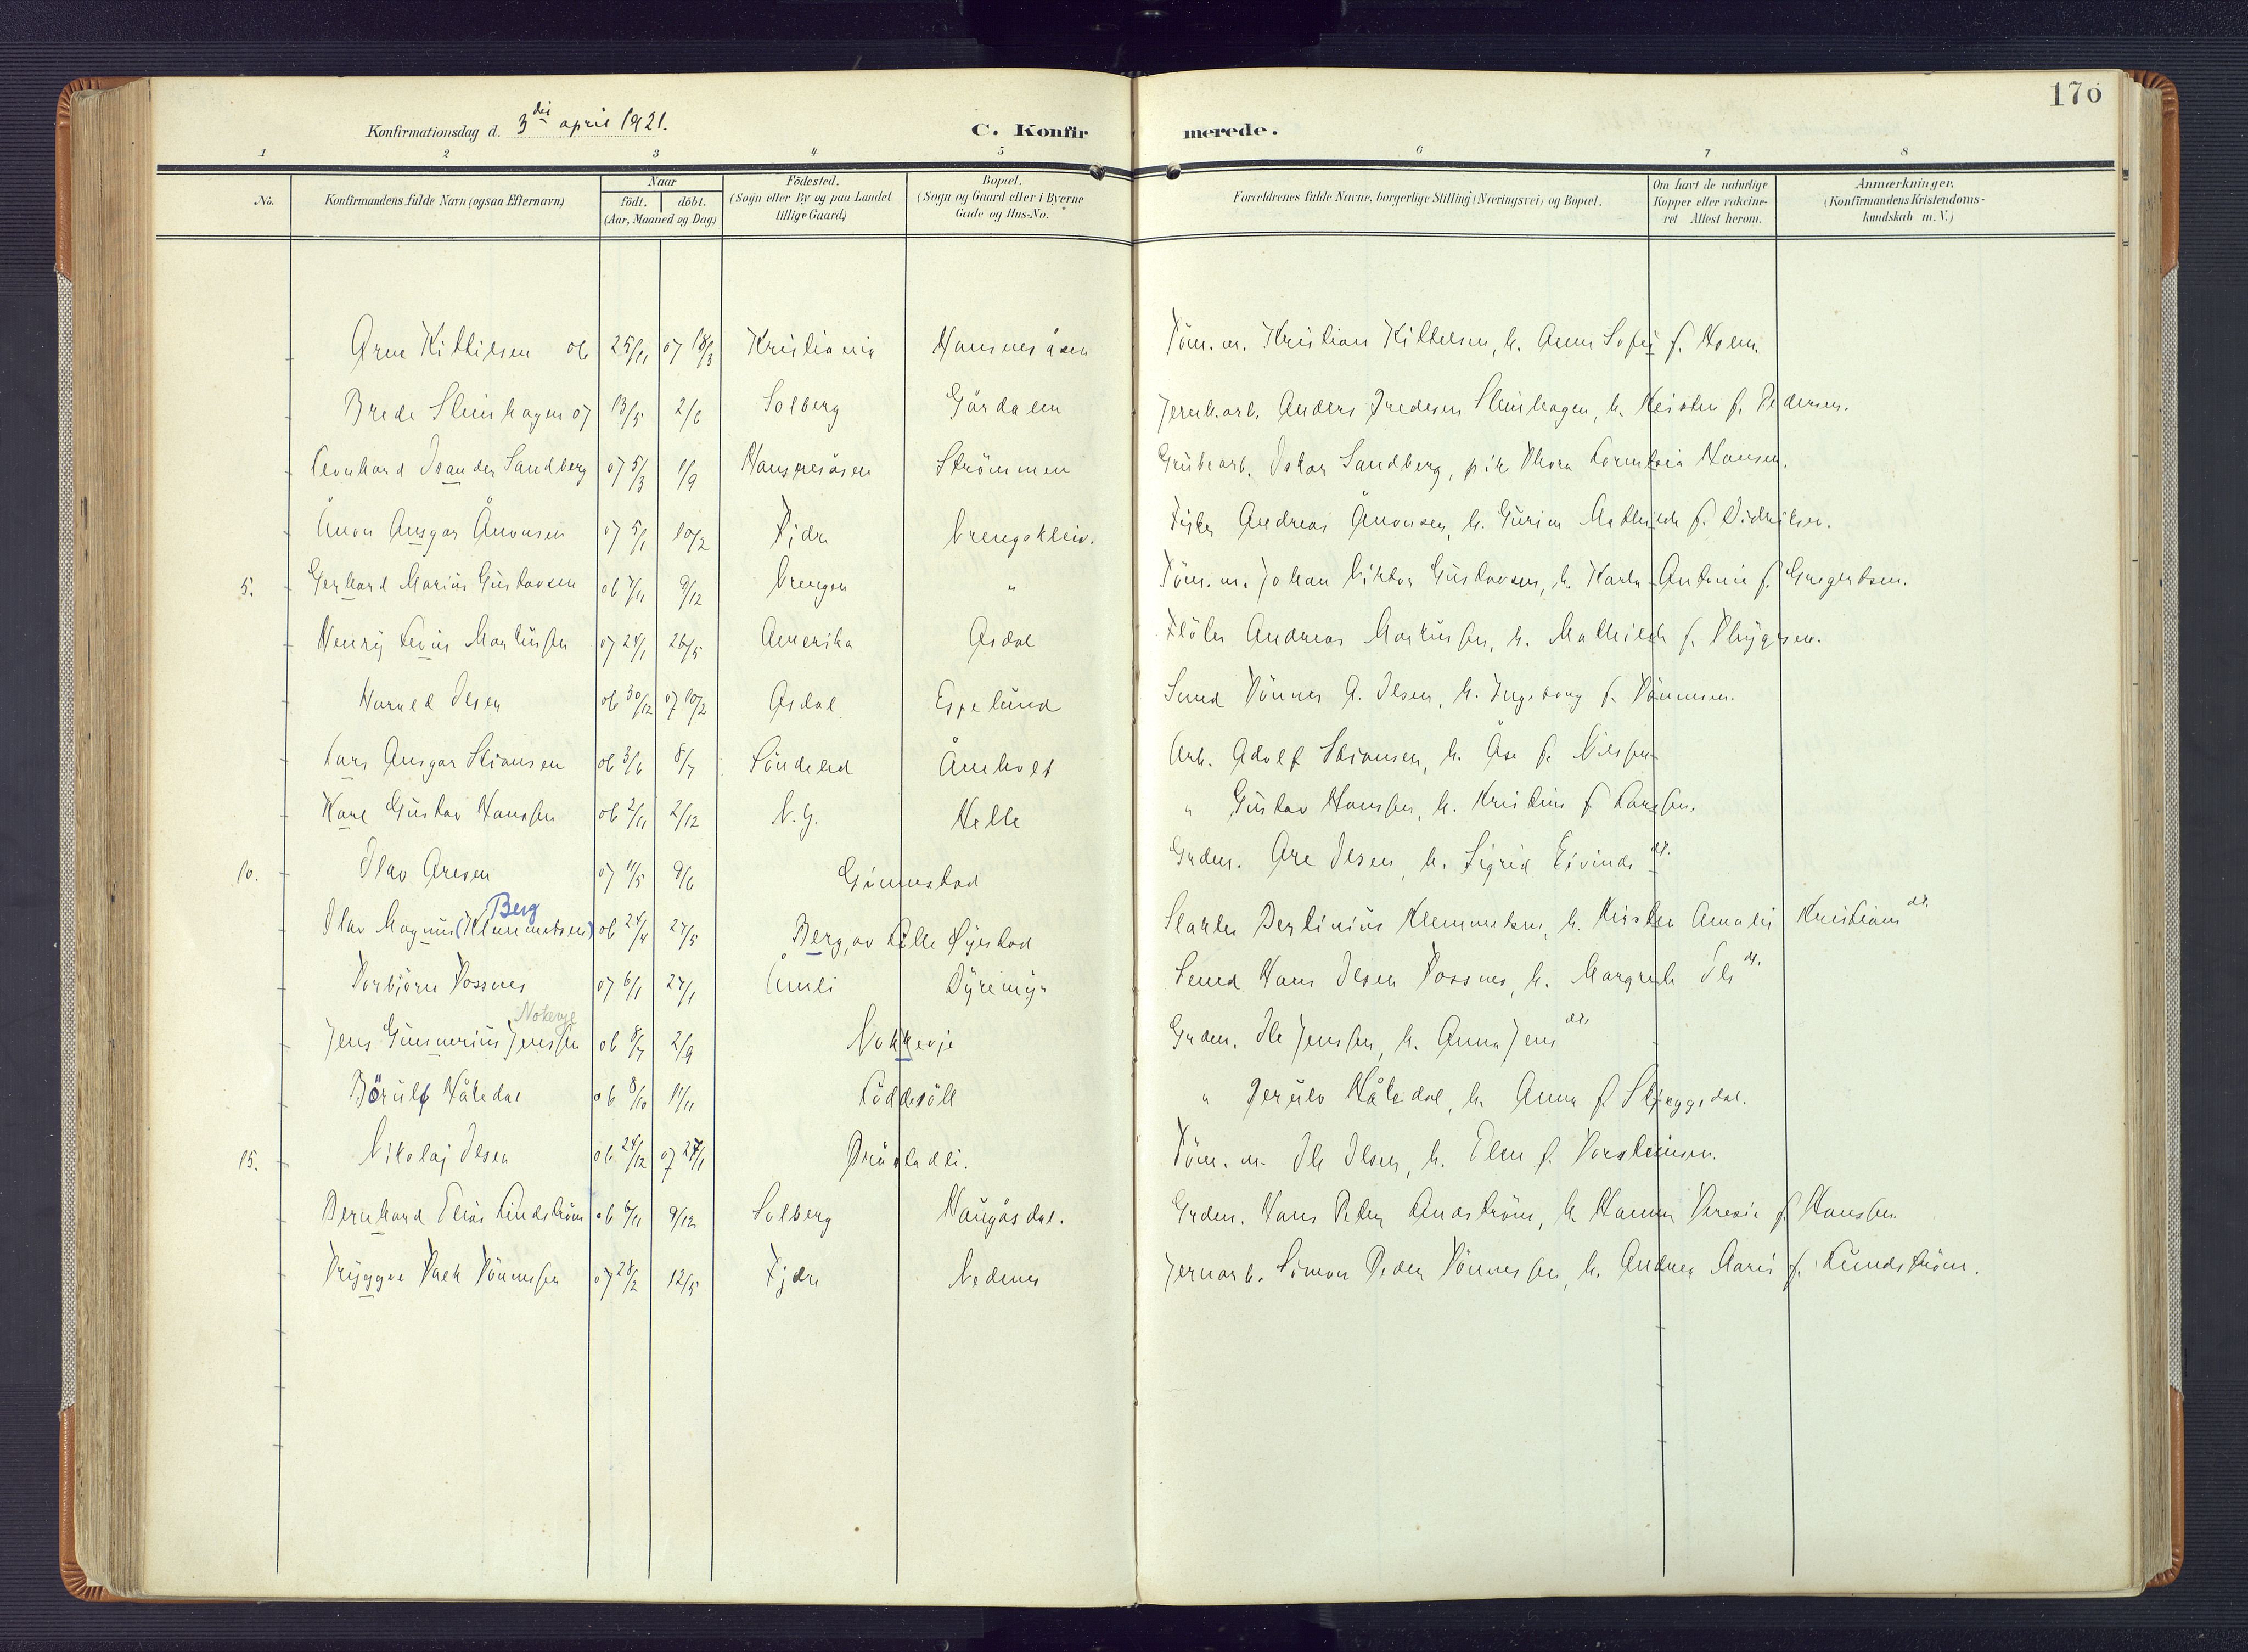 176
Konfirmationsdag d. 3die april 1921.
C. Konfirmerede.
1 2 3 4 5 6 7 8
No. Konfirmandens fulde Navn (ogsaa Efternavn) Naar født. døbt. (Aar, Maaned og Dag) Födested. (Sogn eller By og paa Landet tillige Gaard) Bopæl. (Sogn og Gaard eller i Byerne Gade og Hus-No. Forældrenes fulde Navne, borgerlige Stilling (Næringsvei) og Bopæl. Om havt de naturlige Kopper eller vakcineret Attest herom. Anmærkninger. (Konfirmandens Kristendomskundskab m. V.)
Arne Kittilsen 06 25/11 07 18/3 Kristiania Hansnesåsen Töm. m. Kristian Kittelsen, h. Anna Sofie f. Holm.
Brede Steinhagen 07 13/5 2/6 Solberg Gårdalen Jernb.arb. Anders Fredesen Steinhagen, h. Kristen f. Pedersen.
Leonhard Isander Sandberg 07 5/3 1/9 Hansnesåsen Strömmen Grubearb. Oskar Sandberg, pike Thora Hansen.
Ånon Ansgar Ånonsen 07 5/1 10/2 Fjære Vrengekleiv. Andreas Ånonsen, h. Gurine Mathilde f. Didriksen.
5. Gerhard Marius Gustavsen 06 7/11 9/12 Vrengen " Töm. m. Johan Viktor Gustavsen, h. Karla Antonie f. Gregertsen.
Henry Levis Martinssen 07 21/1 26/5 Amerika Asdal Fløter Andreas Martinssen, h. Mathilde f. Thygesen.
Harald Olsen 06 30/12 07 10/2 Asdal Espelund Smed Tönnes A. Olsen, h. Ingeborg f. Tönnesen.
Lars Ansgar Stiansen 06 3/6 8/7 Söndeled Åmholt Arb. Adolf Stiansen, h. Åse f. Nilssen
Karl Gustav Hanssen 06 2/11 2/12 N.Y. Helle " Gustav Hanssen, h. Kristine f. Larssen.
10. Olav Aresen 07 11/5 9/6 Gunnestad Grdm. Are Olsen, h. Sigrid Eivinds dt.
Olav Magnus (Klemmetsen) Berg 06 24/4 27/5 Berg, av Lille Öyestad Slakter Bertinius Klemmetsen, h. Kirsten Amalie Kristians dt.
Torbjörn Possnes 07 6/1 27/1 Åmli Dyremyr Smed Hans Olsen Possnes, h. Margreth Ols dt.
Jens Gunnerius Jenssen Nokevje 06 8/7 2/9 Nokkevje Grdm. Ole Jenssen, h. Anna Jens dt.
Börulf Håkedal 06 8/10 11/11 Löddesöll " Jerulv Håkedal, h. Anna f. Skjeggedal.
15. Nikolaj Olsen 06 24/12 07 27/1 Töm. m. Ole Olsen, h. Elen f. Torsteinsen.
Bernhard Elias Lindström 06 6/11 9/12 Solberg Haugåsdal. Grdm. Hans Peter Lindström, h. Hanna Teresie f. Hanssen.
Tryggve Tönnessen 07 28/2 12/5 Fjære Nedenes Jernarb. Simon Peder Tönnessen, h. Andrea Marie f. Lundström.